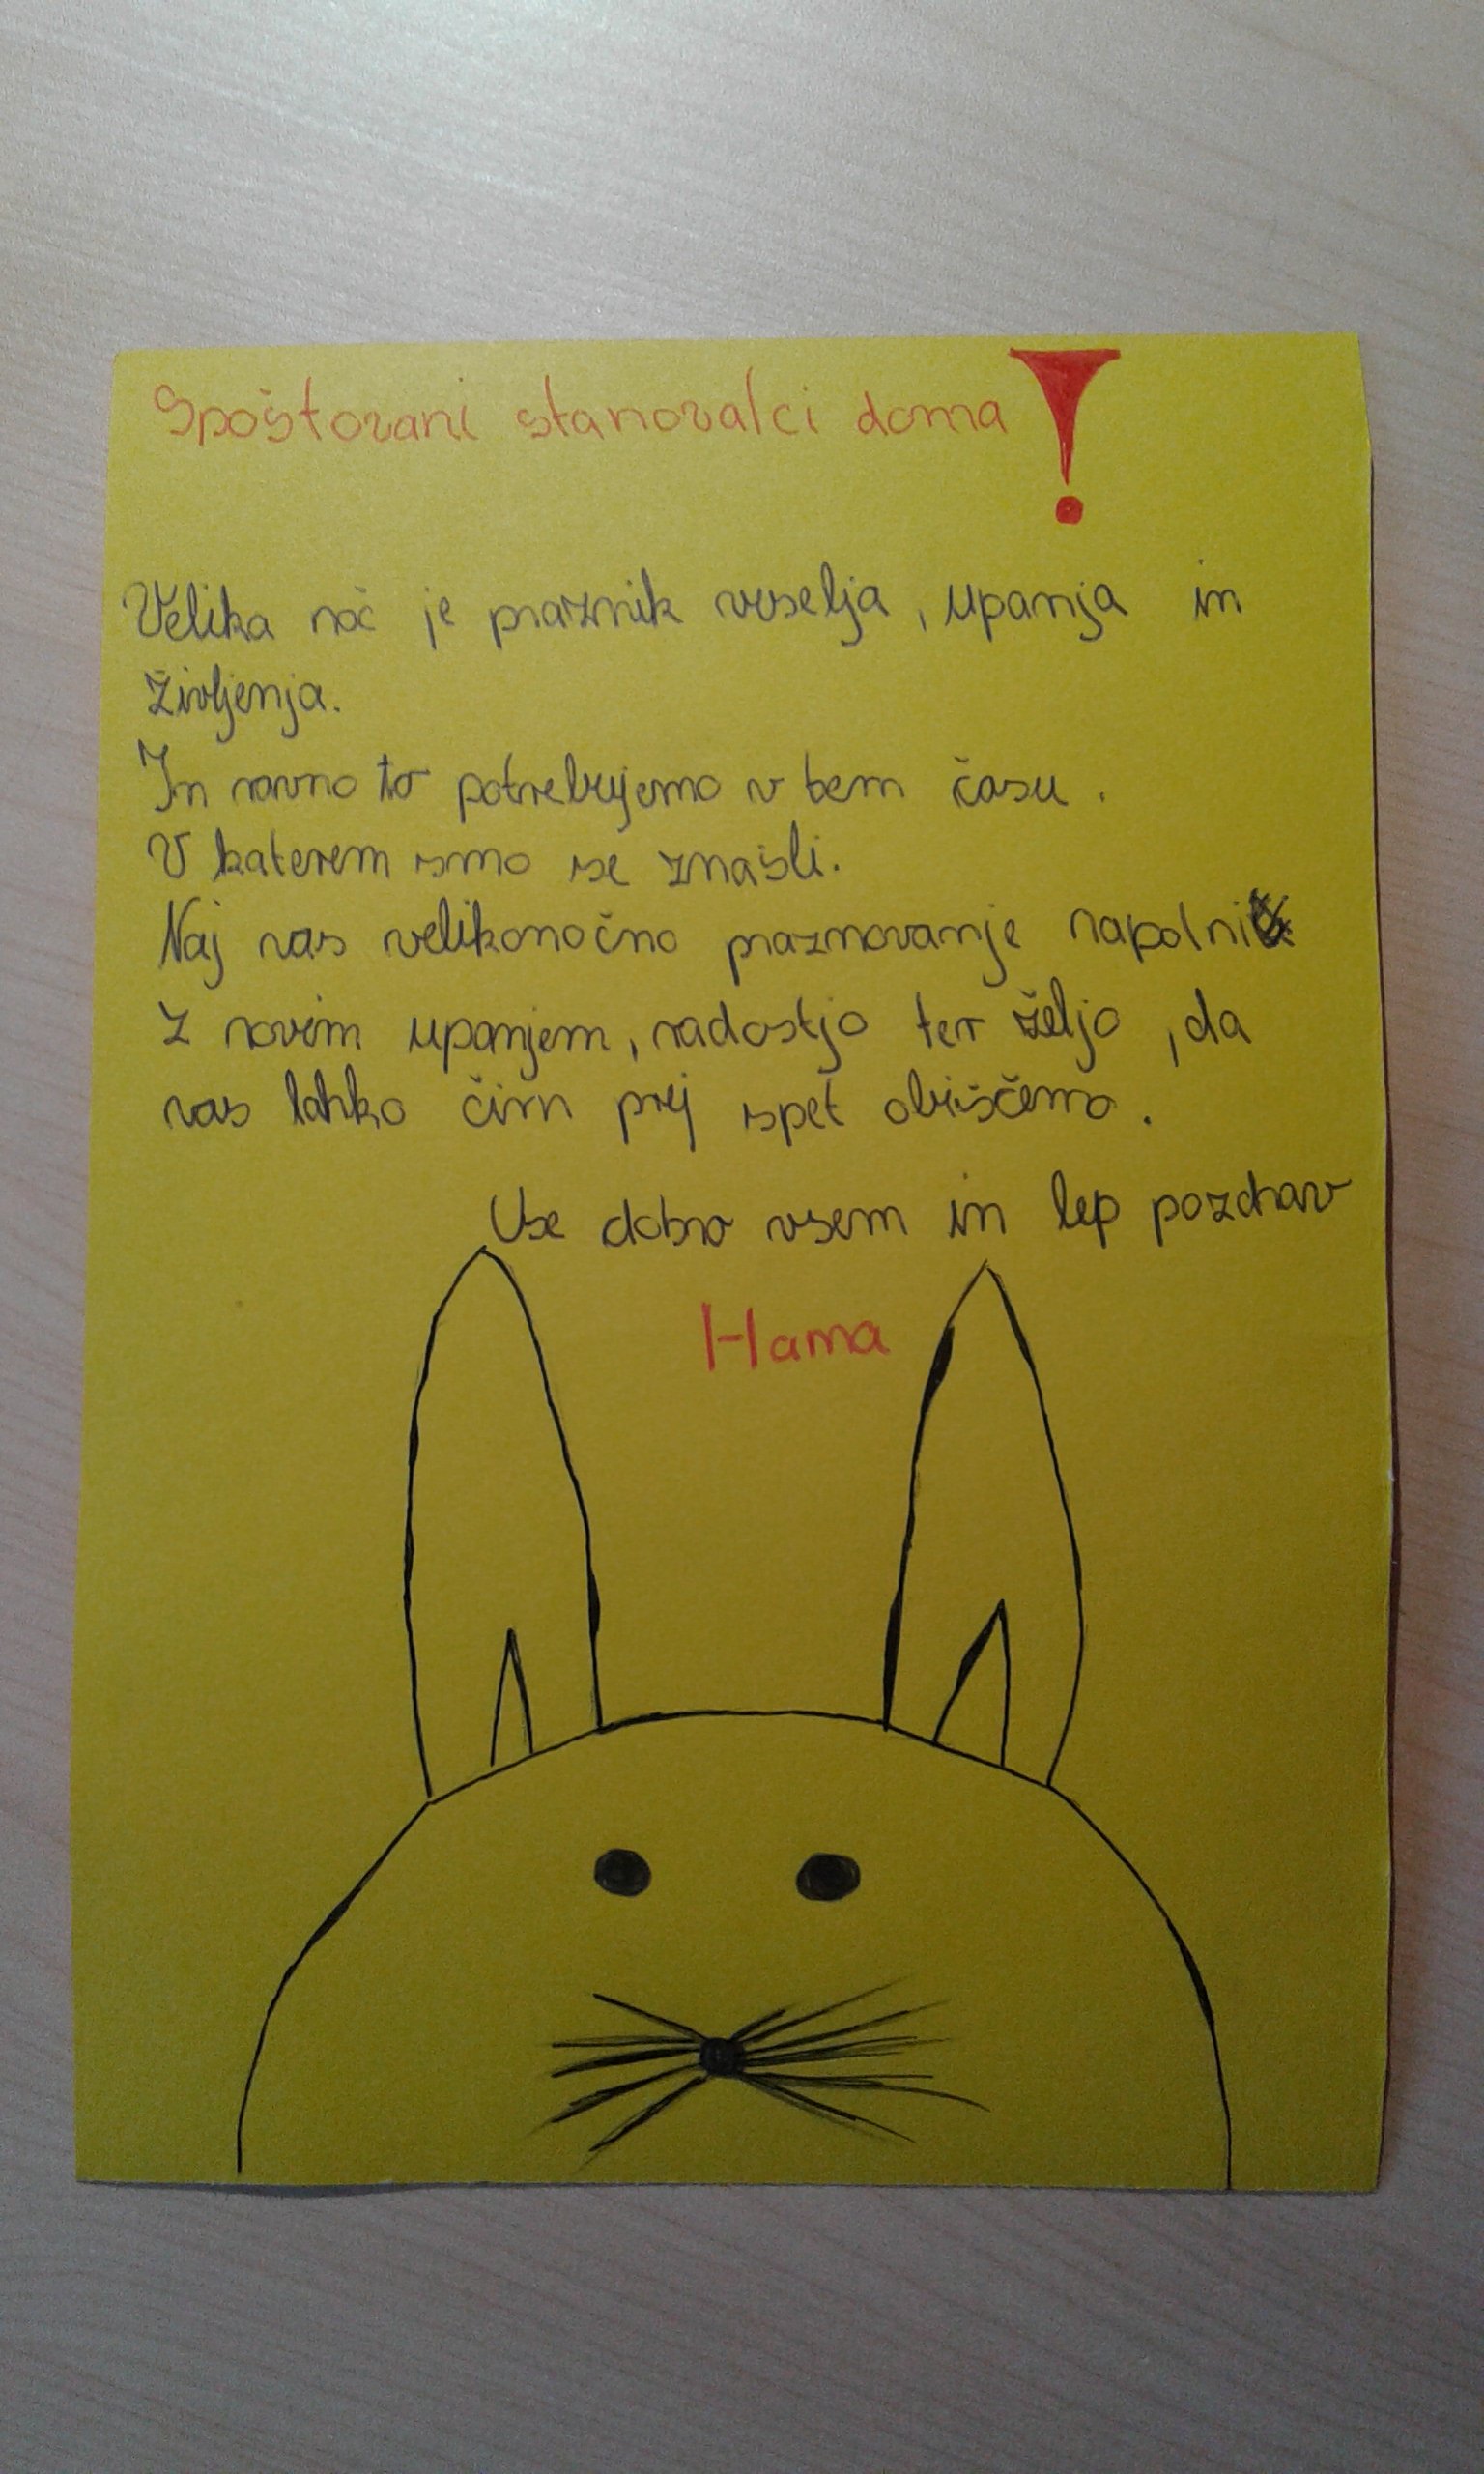 Spoštovani stanovalci doma!
Velika noč je praznik veselja, upanja in
življenja.
In ravno to potrebujemo v tem času.
V katerem smo se znašli.
Naj vas velikonočno praznovanje napolni
z novim upanjem, radostjo ter željo, da
vas lahko čim prej spet obiščemo.
Vse dobro vsem in lep pozdrav
Hana